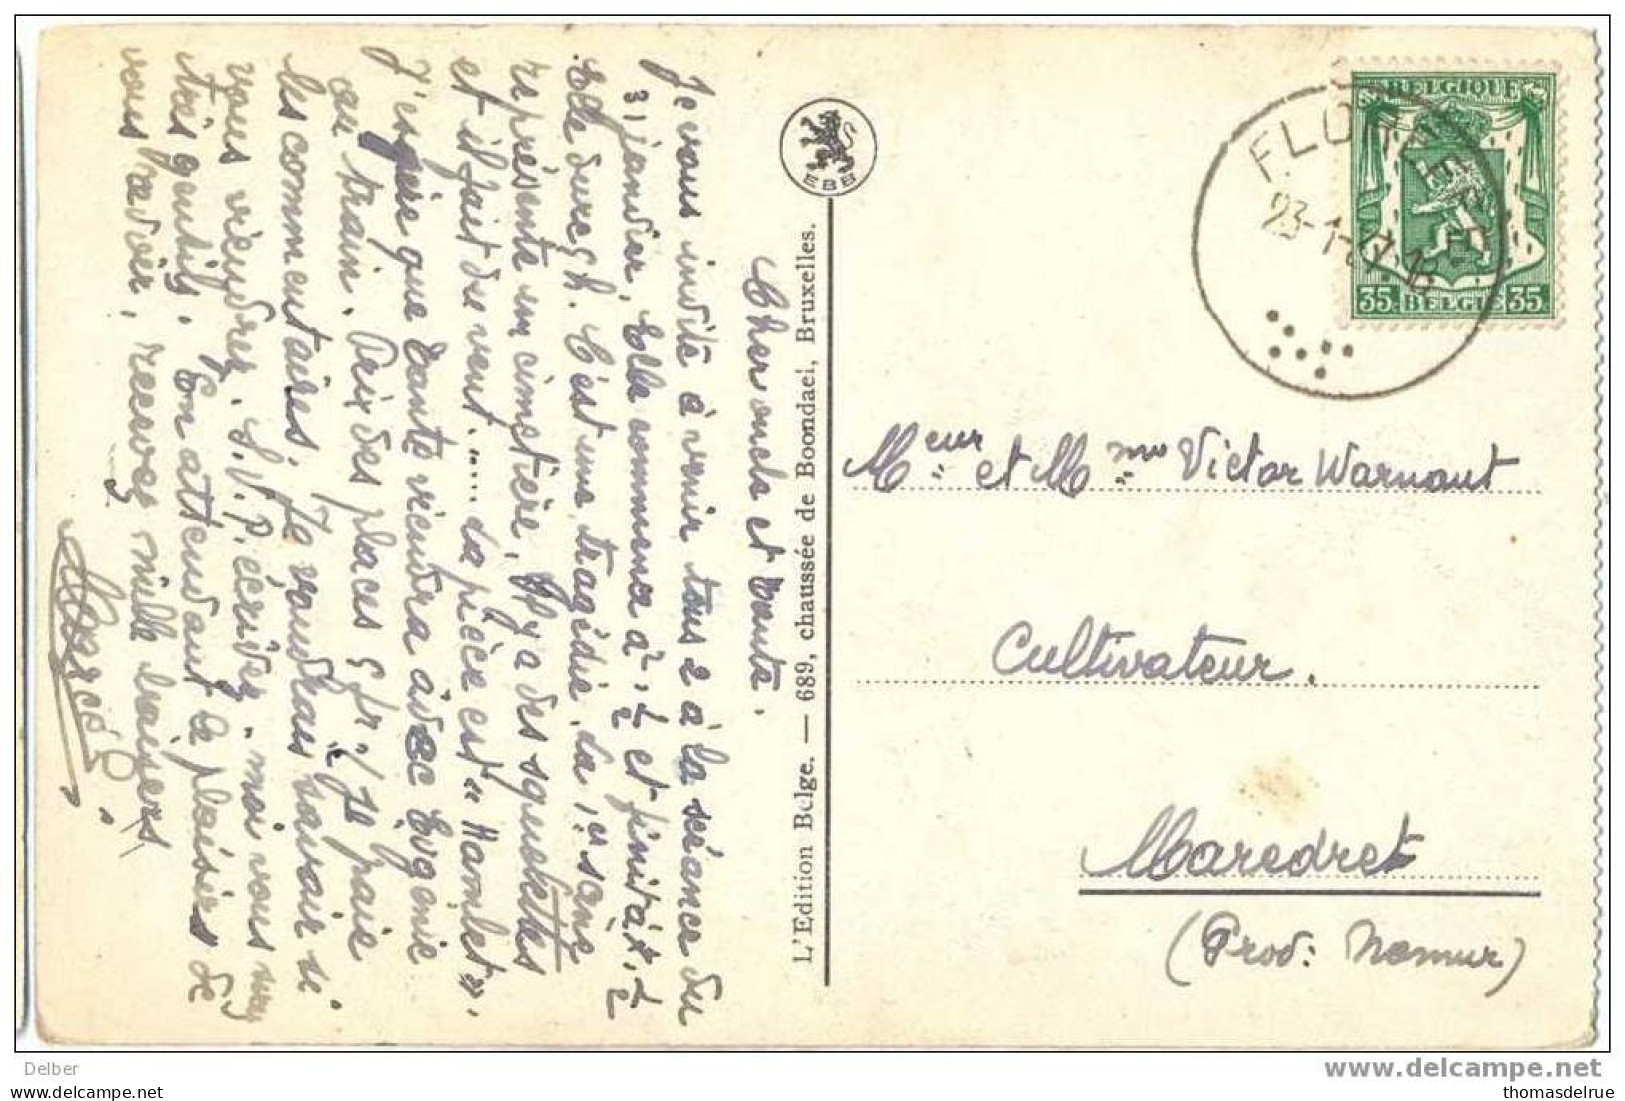 Cher oncle et tante.
Je vous invite à venir tous 2 à la séance du
31 janvier. Elle commence à 2 ½ et finit à 7 ½
Elle dure 5 h. C'est une tragédie. La 1re scène
représente un cimetière. Il y a des squelettes
et il fait du vent..... La pièce est "Hamlet".
J'espère que tante viendra avec Eugénie
au train. Prix des places 5 fr. Je paie
les commentaires. Je voudrais savoir si
vous viendrez. S.V.P. écrivez-moi vous serez
très gentils. En attendant le plaisir de
vous revoir, recevez mille baisers
L'Edition Belge. — 689, chaussée de Boondael, Bruxelles.
EBB
BELGIQUE
35 BELGIE 35
FLOREFFE
23-1-
Meur et Mme Victor Warnant
Cultivateur.
Maredret
(Prov: Namur)
Delber
delcampe.net
thomasdelrue